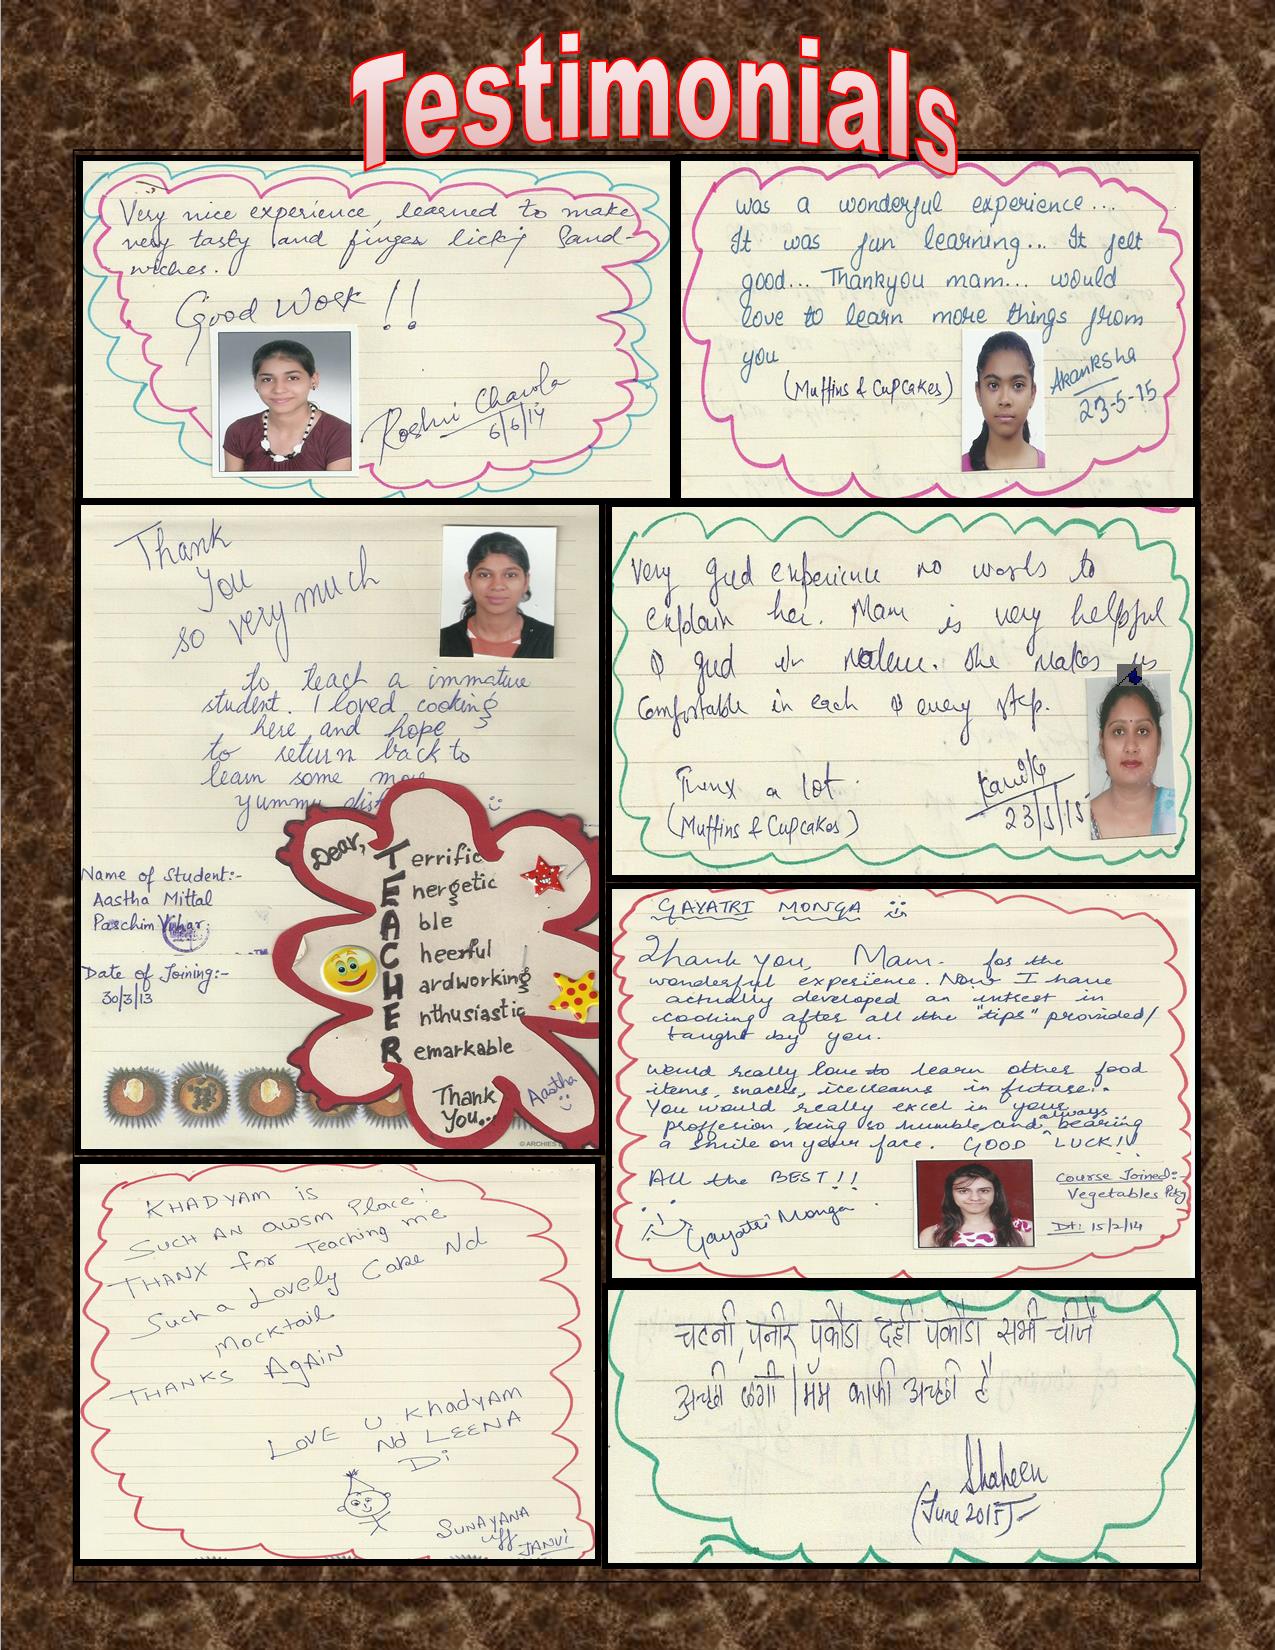 Testimonials
Very nice experience, learned to make
very tasty and finger licky Sand-
wiches.
Good Work !!
Roshni Chawla
6/6/14
was a wonderful experience...
It was fun learning... It felt
good... Thankyou mam... would
love to learn more things from
you
(Muffins & CupCakes)
Akanksha
23-5-15
Thank
you
so very much
to teach a immature
student. I loved cooking
here and hope
to return back to
learn some more
yummy
Name of Student:-
Aastha Mittal
Paschim Vihar.
Date of Joining:-
30/3/13
Dear,
TEACHER
Terrific
Energetic
Able
Cheerful
Hardworking
Enthusiastic
Remarkable
Thank
You...
Aastha
© ARCHIES
Very gud experience no words to
explain her. Mam is very helpful
& gud in nature. She makes us
Comfortable in each & every step.
Thnx a lot.
(Muffins & Cupcakes)
23/5/15
GAYATRI MONGA
Thank you, Mam. for the
wonderful experience. Now I have
actually developed an intrest in
cooking after all the "tips" provided/
taught by you.
Would really love to learn other food
items, snacks, icecreams in future.
You would really excel in your
proffesion, being so humble, and always bearing
a smile on your face. GOOD LUCK!!
All the BEST!!
Gayatri Monga
Course Joined:-
Vegetables Pckg
Dt: 15/2/14
KHADYAM is
SUCH AN awsm Place!
THANX for Teaching me
Such a Lovely Cake Nd
Mocktail
THANKS Again
LOVE U Khadyam
Nd LEENA
Di
SUNAYANA
uff
JANVI
चटनी, पनीर पकौडा दही पकौडा सभी चीजें
अच्छी लगी | मॅम काफी अच्छी है
Shaheen
(June 2015)